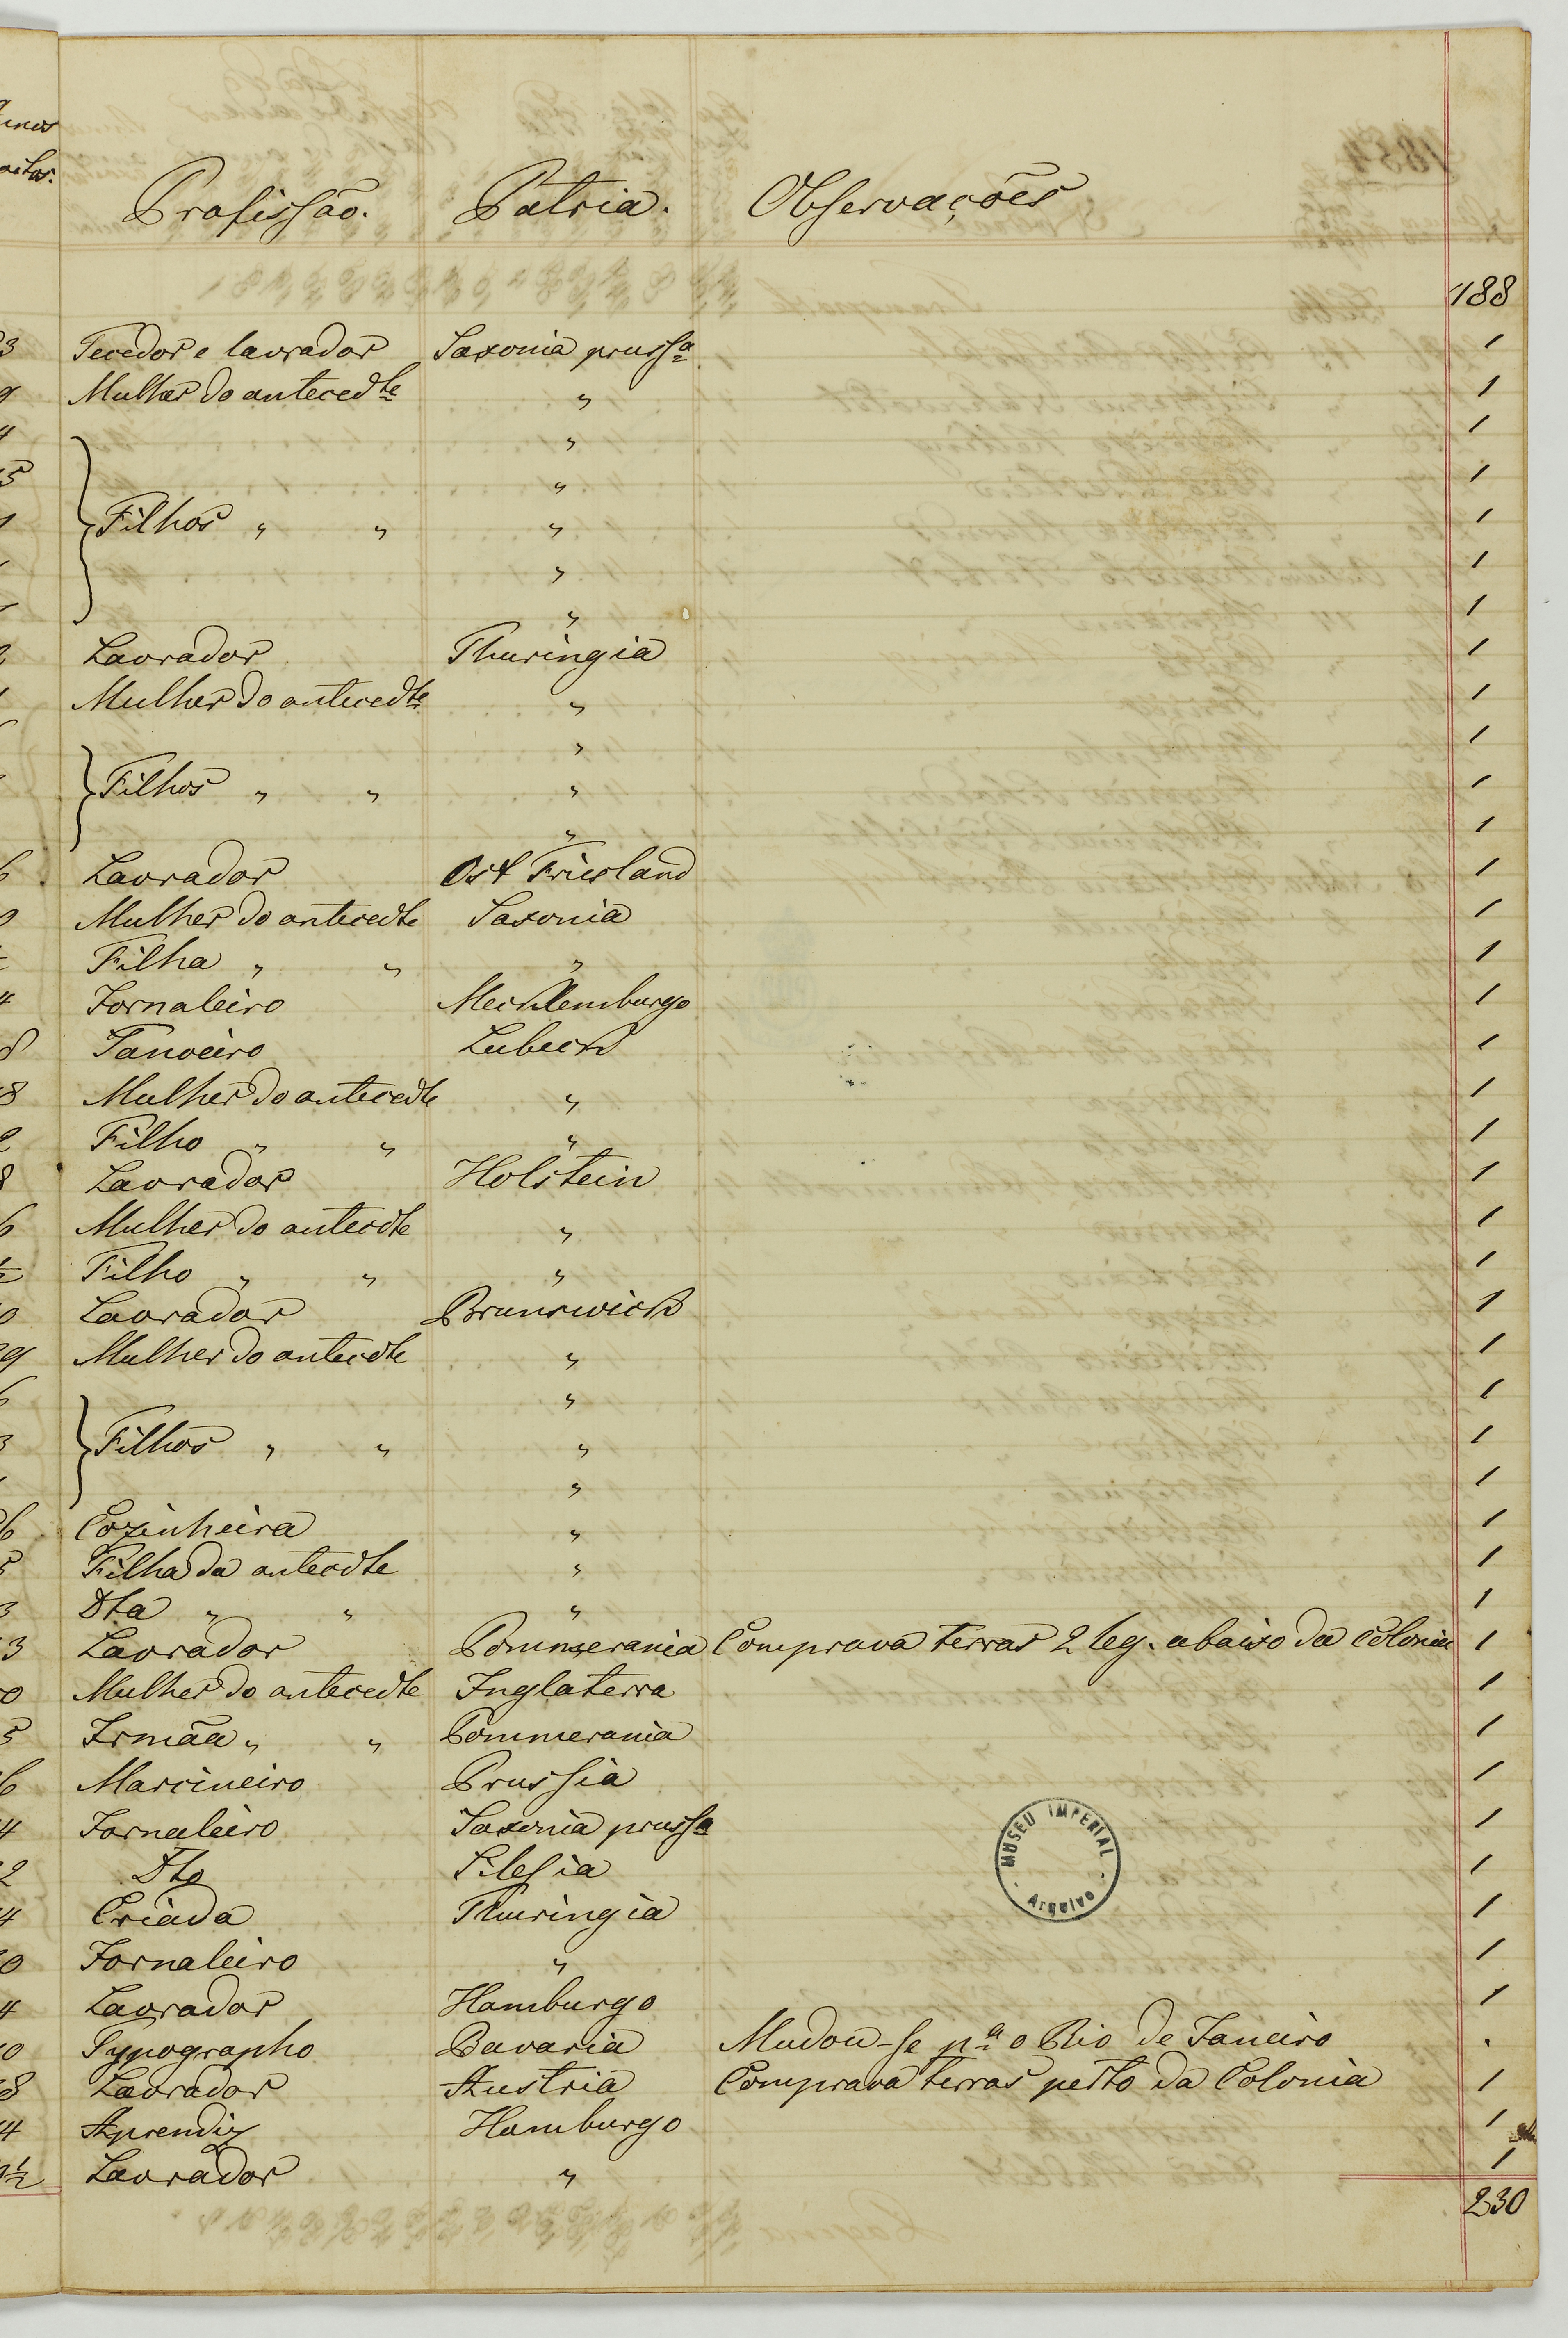 Profissão. Patria. Observações
188
3 Tecedor e lavrador Saxonia pruss.ª 1
9 Mulher do anteced.te " 1
4 " 1
5 " 1
1 Filhos " " " 1
" 1
" 1
2 Lavrador Thuringia 1
1 Mulher do anteced.te " 1
" 1
Filhos " " " 1
" 1
6 Lavrador Ost Friesland 1
9 Mulher do antecedte Saxonia 1
Filha " " " 1
4 Jornaleiro Mecklemburgo 1
8 Tanoeiro Lubeck 1
8 Mulher do antecedte " 1
2 Filho " " " 1
8 Lavrador Holstein 1
6 Mulher do antecdte " 1
½ Filho " " " 1
0 Lavrador Brunswick 1
9 Mulher do antecdte " 1
" 1
3 Filhos " " " 1
" 1
6 Cozinheira " 1
5 Filha da antecdte " 1
3 Dta " " " 1
3 Lavrador Pommerania Comprava terras 2 leg. abaixo da Colonia 1
0 Mulher do antecedte Inglaterra 1
5 Irmãa " " Pommerania 1
6 Marcineiro Prussia 1
4 Jornaleiro Saxonia prussa 1
2 Dto Silesia 1
4 Criada Thuringia 1
0 Jornaleiro " 1
4 Lavrador Hamburgo 1
0 Typographo Bavaria Mudou-se p.ª o Rio de Janeiro .
8 Lavrador Austria Comprava terras perto da Colonia 1
4 Aprendiz Hamburgo 1
½ Lavrador " 1
230
MUSEU IMPERIAL
Arquivo